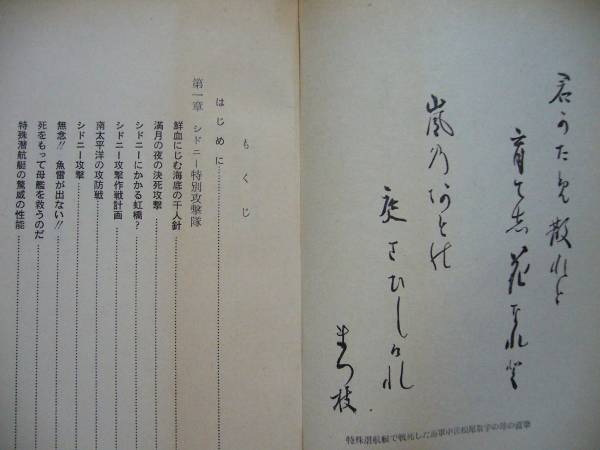 君かため散れと
育て志花なれと
嵐乃あとの
庭さひしけれ
まつ枝
特殊潜航艇で戦死した海軍中佐松尾敬宇の母の直筆
もくじ
はじめに
第一章 シドニー特別攻撃隊
鮮血にじむ海底の千人針
満月の夜の決死攻撃
シドニーにかかる虹橋?
シドニー攻撃作戦計画
南太平洋の攻防戦
シドニー攻撃
無念!! 魚雷が出ない!!
死をもって母艦を救うのだ
特殊潜航艇の驚威の性能